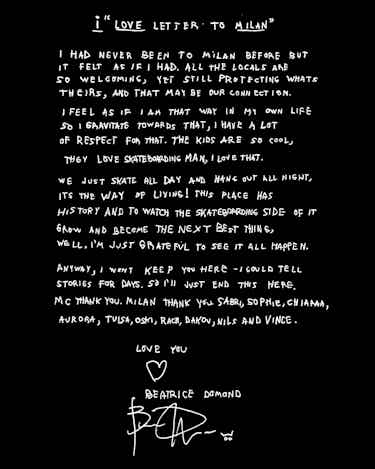 i "LOVE LETTER TO MILAN"
I HAD NEVER BEEN TO MILAN BEFORE BUT
IT FELT AS IF I HAD. ALL THE LOCALS ARE
SO WELCOMING, YET STILL PROTECTING WHATS
THEIRS, AND THAT MAY BE OUR CONNECTION.
I FEEL AS IF I AM THAT WAY IN MY OWN LIFE
SO I GRAVITATE TOWARDS THAT, I HAVE A LOT
OF RESPECT FOR THAT. THE KIDS ARE SO COOL,
THEY LOVE SKATEBOARDING MAN, I LOVE THAT.
WE JUST SKATE ALL DAY AND HANG OUT ALL NIGHT,
ITS THE WAY OF LIVING! THIS PLACE HAS
HISTORY AND TO WATCH THE SKATEBOARDING SIDE OF IT
GROW AND BECOME THE NEXT BEST THING,
WELL, I'M JUST GRATEFUL TO SEE IT ALL HAPPEN.
ANYWAY, I WONT KEEP YOU HERE - I COULD TELL
STORIES FOR DAYS. SO I'LL JUST END THIS HERE.
MC THANK YOU. MILAN THANK YOU. SABRI, SOPHIE, CHIARAA,
AURORA, TULSA, OSKI, RACH, DAKOU, NILS AND VINCE.
LOVE YOU
BEATRICE DOMOND